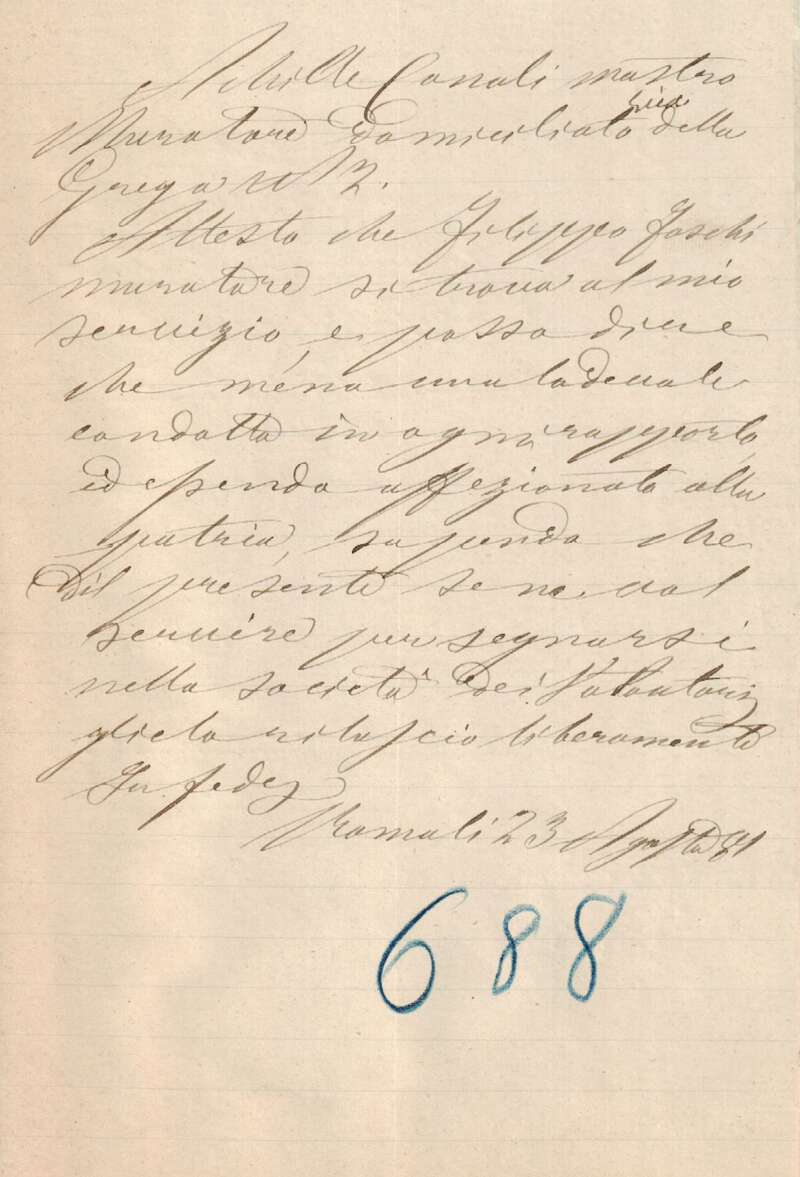 Achille Canali mastro
Muratore domiciliato via della
Grega N 12.
Attesto che Filippo Foschi
muratore si trova al mio
servizio, e posso dire
che ména una lodevole
condotta in ogni rapporto,
ed essendo affezionato alla
patria, sapendo che
dil presente se ne vol
servire per segnarsi
nella società dei Volontari
glielo rilascio liberamente
In fede
Roma li 23 Agosto 81
688